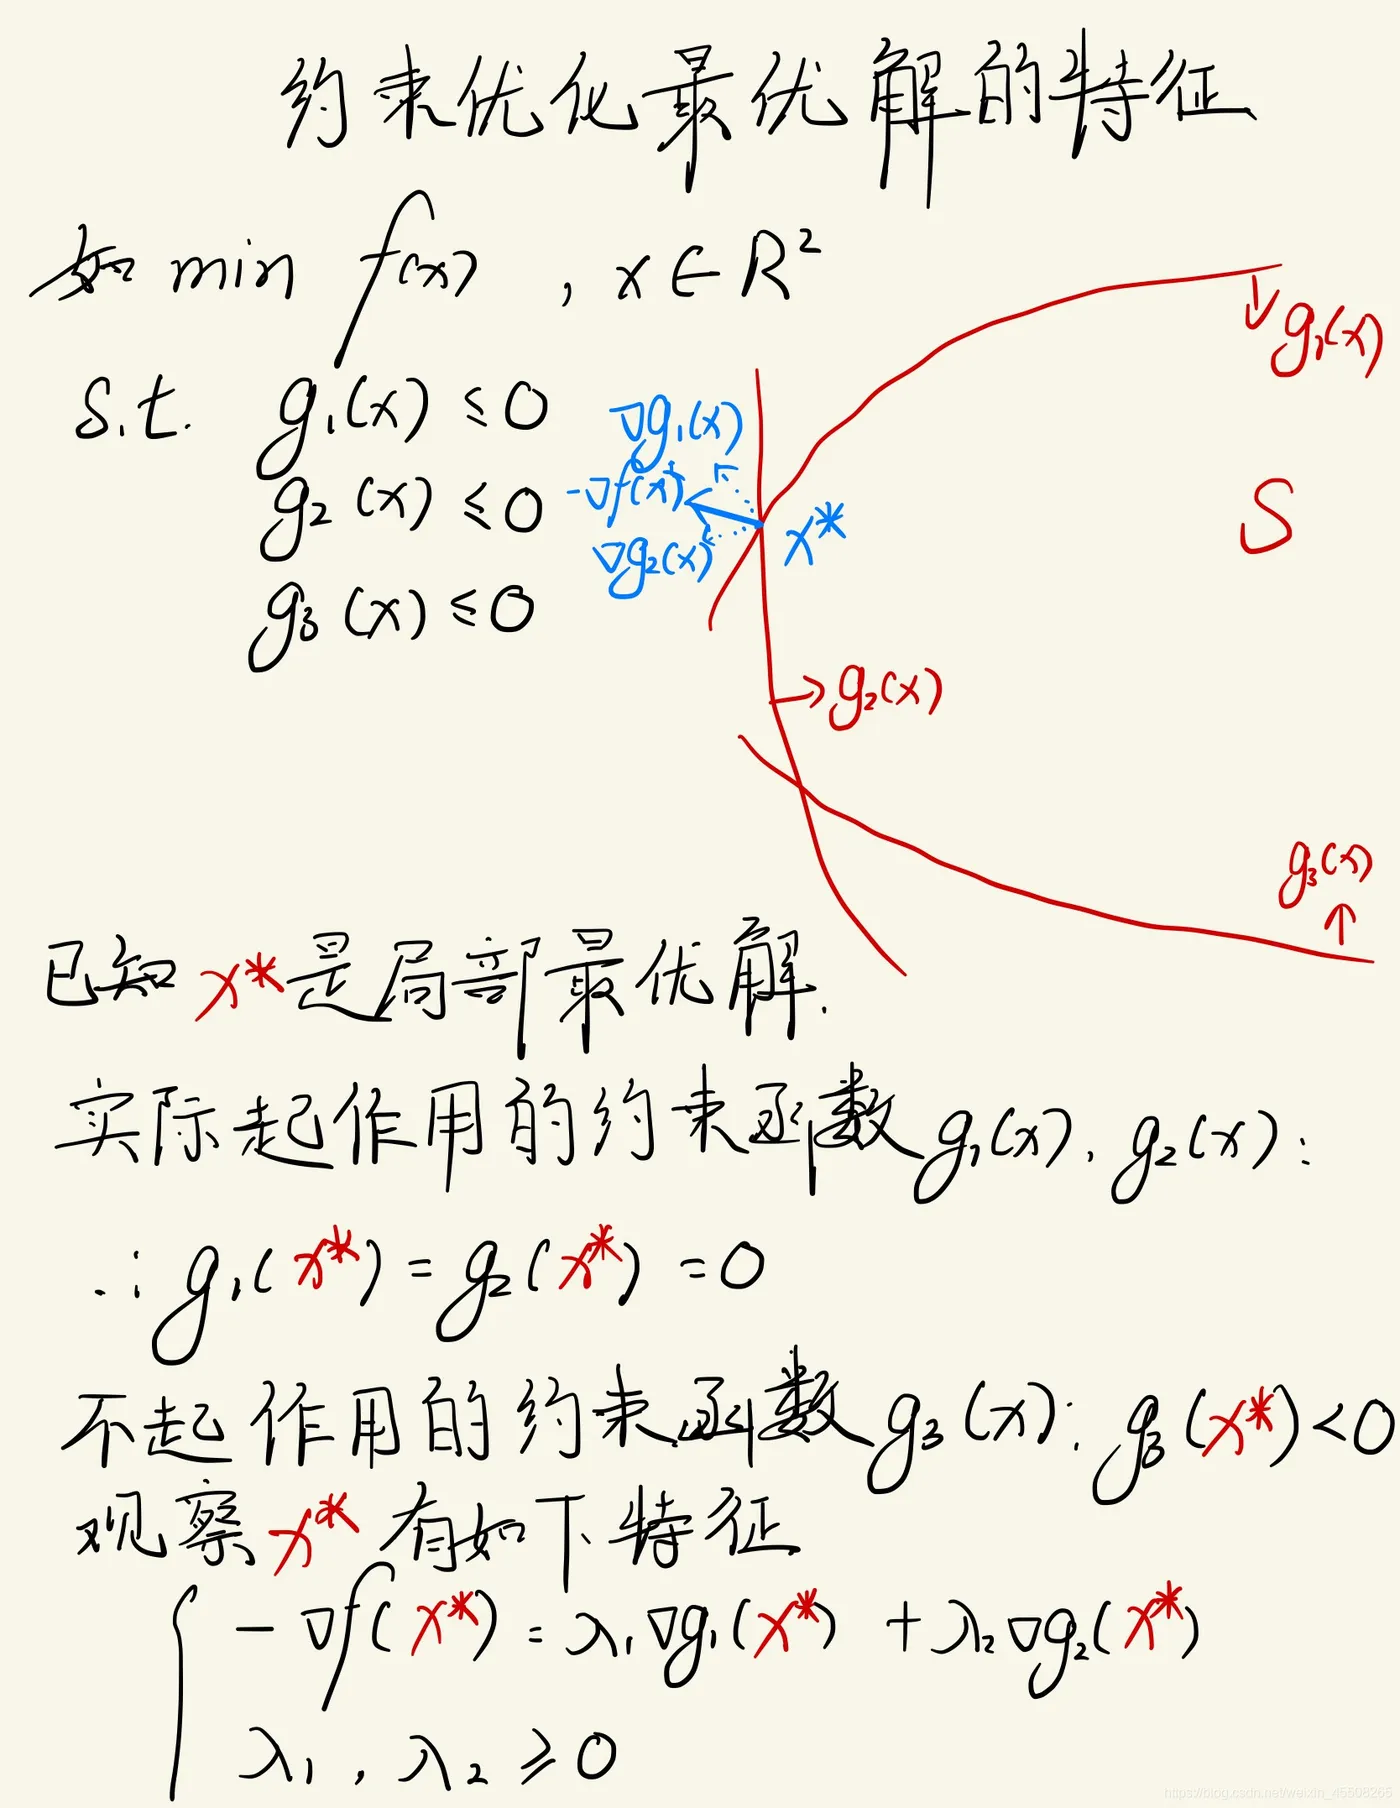 约束优化最优解的特征
如 min f(x) , x∈R²
s.t. g₁(x) ≤ 0
g₂(x) ≤ 0
g₃(x) ≤ 0
∇g₁(x)
-∇f(x)
∇g₂(x)
x*
g₁(x)
S
g₂(x)
g₃(x)
已知 x* 是局部最优解.
实际起作用的约束函数 g₁(x), g₂(x):
∴ g₁(x*) = g₂(x*) = 0
不起作用的约束函数 g₃(x): g₃(x*) < 0
观察 x* 有如下特征
-∇f(x*) = λ₁∇g₁(x*) + λ₂∇g₂(x*)
λ₁, λ₂ ≥ 0
https://blog.csdn.net/weixin_45508265